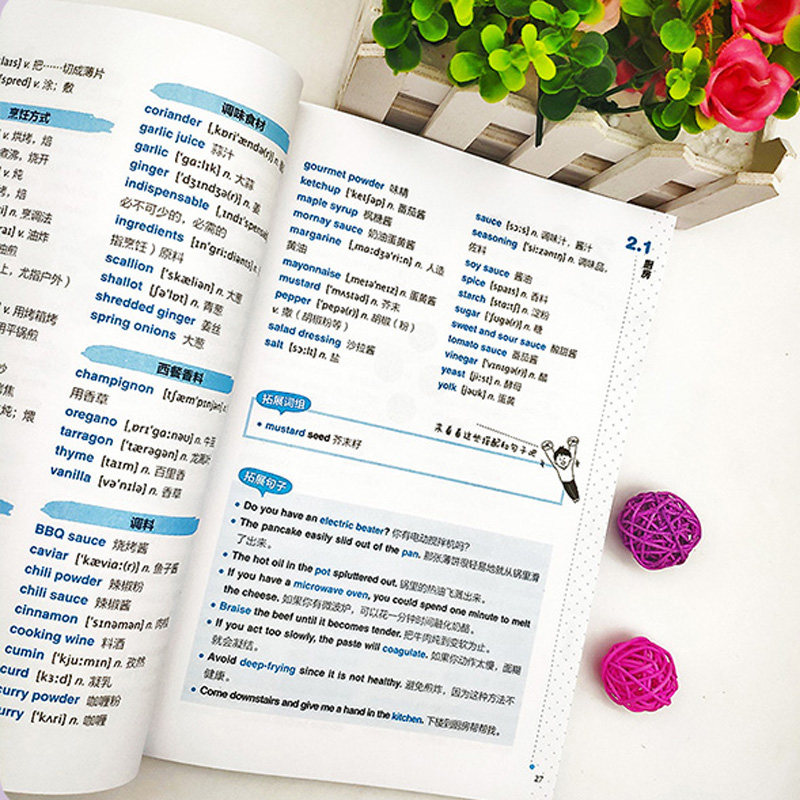 v. 把……切成薄片
v. 涂；敷
烹饪方式
v. 烘烤，焙
煮沸，烧开
v. 炖
烤，焙
n. 烹调法
v. 油炸
油煎
上，尤指户外）
v. 用烤箱烤
用平锅煎
调味食材
coriander [ˌkɒriˈændə(r)] n.
garlic juice 蒜汁
garlic [ˈɡɑːlɪk] n. 大蒜
ginger [ˈdʒɪndʒə(r)] n. 姜
indispensable
必不可少的，必需的
ingredients [ɪnˈɡriːdiənts] n.
指烹饪）原料
scallion [ˈskæliən] n. 大葱
shallot [ʃəˈlɒt] n. 青葱
shredded ginger 姜丝
spring onions 大葱
西餐香料
champignon [tʃæmˈpɪnjən] n.
用香草
oregano [ˌɒrɪˈɡɑːnəʊ] n.
tarragon [ˈtærəɡən] n. 龙蒿
thyme [taɪm] n. 百里香
vanilla [vəˈnɪlə] n. 香草
调料
BBQ sauce 烧烤酱
caviar [ˈkæviɑː(r)] n. 鱼子酱
chili powder 辣椒粉
chili sauce 辣椒酱
cinnamon [ˈsɪnəmən] n. 肉桂
cooking wine 料酒
cumin [ˈkjuːmɪn] n. 孜然
curd [kɜːd] n. 凝乳
curry powder 咖喱粉
curry [ˈkʌri] n. 咖喱
gourmet powder 味精
ketchup [ˈketʃəp] n. 番茄酱
maple syrup 枫糖酱
mornay sauce 奶油蛋黄酱
margarine [ˌmɑːdʒəˈriːn] n. 人造
黄油
mayonnaise [ˌmeɪəˈneɪz] n. 蛋黄酱
mustard [ˈmʌstəd] n. 芥末
pepper [ˈpepə(r)] n. 胡椒（粉）
v. 撒（胡椒粉等）
salad dressing 沙拉酱
salt [sɔːlt] n. 盐
sauce [sɔːs] n. 调味汁，酱汁
seasoning [ˈsiːzənɪŋ] n. 调味品，
佐料
soy sauce 酱油
spice [spaɪs] n. 香料
starch [stɑːtʃ] n. 淀粉
sugar [ˈʃʊɡə(r)] n. 糖
sweet and sour sauce 酸甜酱
tomato sauce 番茄酱
vinegar [ˈvɪnɪɡə(r)] n. 醋
yeast [jiːst] n. 酵母
yolk [jəʊk] n. 蛋黄
2.1
厨房
拓展词组
• mustard seed 芥末籽
来看看这些搭配和句子吧
拓展句子
• Do you have an electric beater? 你有电动搅拌机吗？
• The pancake easily slid out of the pan. 那张薄饼很轻易地就从锅里滑
了出来。
• The hot oil in the pot spluttered out. 锅里的热油飞溅出来。
• If you have a microwave oven, you could spend one minute to melt
the cheese. 如果你有微波炉，可以花一分钟时间融化奶酪。
• Braise the beef until it becomes tender. 把牛肉炖到变软为止。
• If you act too slowly, the paste will coagulate. 如果你动作太慢，面糊
就会凝结。
• Avoid deep-frying since it is not healthy. 避免煎炸，因为这种方法不
健康。
• Come downstairs and give me a hand in the kitchen. 下楼到厨房帮帮我。
27